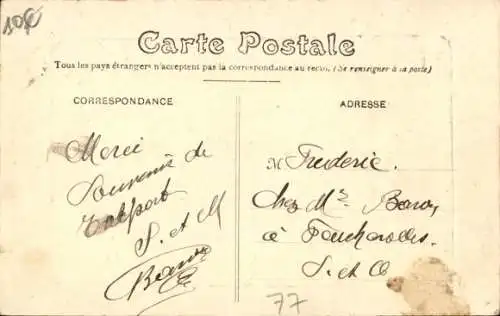 10€
Carte Postale
Tous les pays étrangers n'acceptent pas la correspondance au recto. (Se renseigner à la poste)
CORRESPONDANCE
ADRESSE
Merci
Souvenir de
S. et M
M Frederic.
Chez Mr
à
S. et O
77